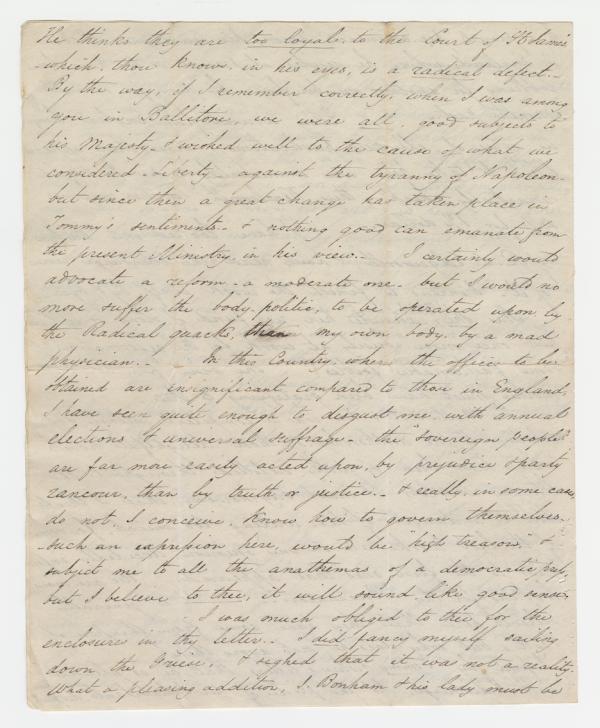 He thinks they are too loyal to the Court of St James
-which, thou knows, in his eyes, is a radical defect.-
By the way, if I remember correctly, when I was among
you in Ballitore, we were all good subjects to
his Majesty & wished well to the cause of what we
considered - Liberty - against the tyranny of Napoleon
but since then a great change has taken place in
Tommy's sentiments - & nothing good can emanate from
the present Ministry, in his view. - I certainly would
advocate a reform - a moderate one - but I would no
more suffer the body politic, to be operated upon, by
the Radical quacks, than my own body by a mad
physician. - In this Country where the offices to be
obtained are insignificant compared to those in England,
I have seen quite enough to disgust me, with annual
elections & universal suffrage - the "sovereign people"
are far more easily acted upon, by prejudice & party
rancour, than by truth or justice - & really, in some cases,
do not, I conceive, know how to govern themselves
-such an expression here, would be "high treason," &
subject me to all the anathemas, of a democratic
but I believe to thee, it will sound, like good sense
- I was much obliged to thee for the
enclosure in thy letter. - I did fancy myself sailing
down the Griese, & sighed that it was not a reality.
What a pleasing addition, J. Bonham & his lady must be